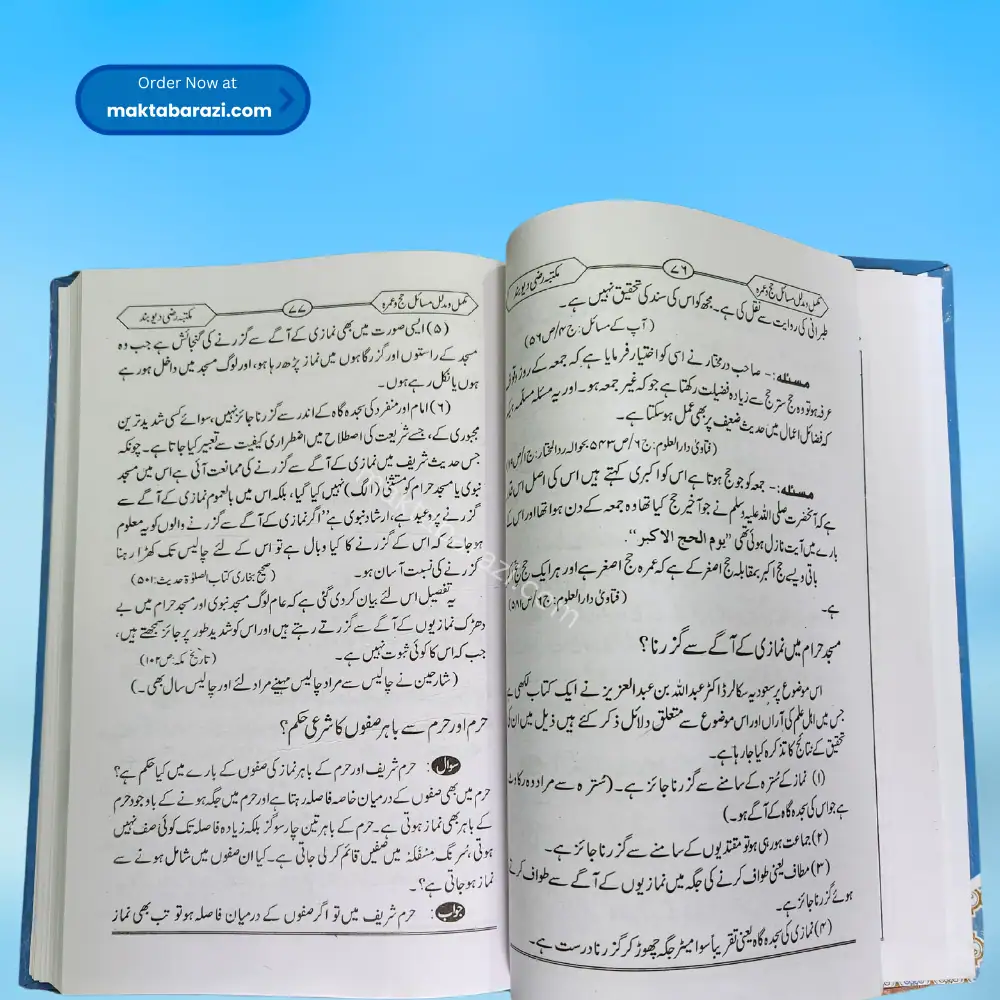 Order Now at
maktabarazi.com
مکمل و مدلل مسائل حج و عمرہ
۷۶
مکتبہ رضی دیوبند
طبرانی کی روایت سے نقل کی ہے۔ مجھ کو اس کی سند کی تحقیق نہیں ہے۔
(آپ کے مسائل: ج۴/ص۵۶)
مسئلہ:- صاحب درمختار نے اسی کو اختیار فرمایا ہے کہ جمعہ کے روز وقوف
عرفہ ہو تو وہ حج ستر حج سے زیادہ فضیلت رکھتا ہے جو کہ غیر جمعہ ہو۔ اور یہ مسئلہ مسلمہ ہے
کہ فضائل اعمال میں حدیث ضعیف پر بھی عمل ہو سکتا ہے۔
(فتاویٰ دارالعلوم: ج۶/ص۵۴۳ بحوالہ ردالمختار: ج۱/ص
مسئلہ:- جمعہ کو جو حج ہوتا ہے اس کو اکبری کہتے ہیں اس کی اصل اس
ہے کہ آنحضرت صلی اللہ علیہ وسلم نے جو آخیر حج کیا تھا وہ جمعہ کے دن ہوا تھا اور اس کے
بارے میں آیت نازل ہوئی تھی ”یوم الحج الاکبر“۔
باقی ویسے حج اکبر بمقابلہ حج اصغر کے ہے کہ عمرہ حج اصغر ہے اور ہر ایک حج حج
ہے۔ (فتاویٰ دارالعلوم: ج۶/ص۵۸۱)
مسجد حرام میں نمازی کے آگے سے گزرنا؟
اس موضوع پر سعودیہ سکالر ڈاکٹر عبداللہ بن عبدالعزیز نے ایک کتاب لکھی ہے
جس میں اہل علم کی آراں اور اس موضوع سے متعلق دلائل ذکر کئے ہیں ذیل میں ان کی
تحقیق کے نتائج کا تذکرہ کیا جا رہا ہے۔
(۱) نماز کے سُترہ کے سامنے سے گزرنا جائز ہے۔ (سُترہ سے مراد وہ رکاوٹ
ہے جو اس کی سجدہ گاہ کے آگے ہو۔)
(۲) جماعت ہو رہی ہو تو مقتدیوں کے سامنے سے گزرنا جائز ہے۔
(۳) مطاف یعنی طواف کرنے کی جگہ میں نمازیوں کے آگے سے طواف کرتے
ہوئے گزرنا جائز ہے۔
(۴) نمازی کی سجدہ گاہ یعنی تقریباً سوا میٹر جگہ چھوڑ کر گزرنا درست ہے۔
مکمل و مدلل مسائل حج و عمرہ
۷۷
مکتبہ رضی دیوبند
(۵) ایسی صورت میں بھی نمازی کے آگے سے گزرنے کی گنجائش ہے جب وہ
مسجد کے راستوں اور گزرگاہوں میں نماز پڑھ رہا ہو، اور لوگ مسجد میں داخل ہو رہے
ہوں یا نکل رہے ہوں۔
(۶) امام اور منفرد کی سجدہ گاہ کے اندر سے گزرنا جائز نہیں، سوائے کسی شدید ترین
مجبوری کے، جسے شریعت کی اصطلاح میں اضطراری کیفیت سے تعبیر کیا جاتا ہے۔ چونکہ
جس حدیث شریف میں نمازی کے آگے سے گزرنے کی ممانعت آئی ہے اس میں مسجد
نبوی یا مسجد حرام کو مستثنیٰ (الگ) نہیں کیا گیا، بلکہ اس میں بالعموم نمازی کے آگے سے
گزرنے پر وعید ہے، ارشاد نبوی ہے ”اگر نمازی کے آگے سے گزرنے والوں کو یہ معلوم
ہو جائے کہ اس کے گزرنے کا کیا وبال ہے تو اس کے لئے چالیس تک کھڑا رہنا
گزرنے کی نسبت آسان ہو۔ (صحیح بخاری کتاب الصلوٰۃ حدیث: ۵۰۱)
یہ تفصیل اس لئے بیان کر دی گئی ہے کہ عام لوگ مسجد نبوی اور مسجد حرام میں بے
دھڑک نمازیوں کے آگے سے گزرتے رہتے ہیں اور اس کو شدید طور پر جائز سمجھتے ہیں،
جب کہ اس کا کوئی ثبوت نہیں ہے۔ (تاریخ مکہ: ص۱۰۲)
(شارحین نے چالیس سے مراد چالیس مہینے مراد لئے اور چالیس سال بھی۔)
حرم اور حرم سے باہر صفوں کا شرعی حکم؟
سوال: حرم شریف اور حرم کے باہر نماز کی صفوں کے بارے میں کیا حکم ہے؟
حرم میں بھی صفوں کے درمیان خاصہ فاصلہ رہتا ہے اور حرم میں جگہ ہونے کے باوجود حرم
کے باہر بھی نماز ہوتی ہے۔ حرم کے باہر تین چار سو گز بلکہ زیادہ فاصلہ تک کوئی صف نہیں
ہوتی، سُرنگ مسفلہ میں صفیں قائم کر لی جاتی ہے۔ کیا ان صفوں میں شامل ہونے سے
نماز ہو جاتی ہے؟۔
جواب: حرم شریف میں تو اگر صفوں کے درمیان فاصلہ ہو تو تب بھی نماز